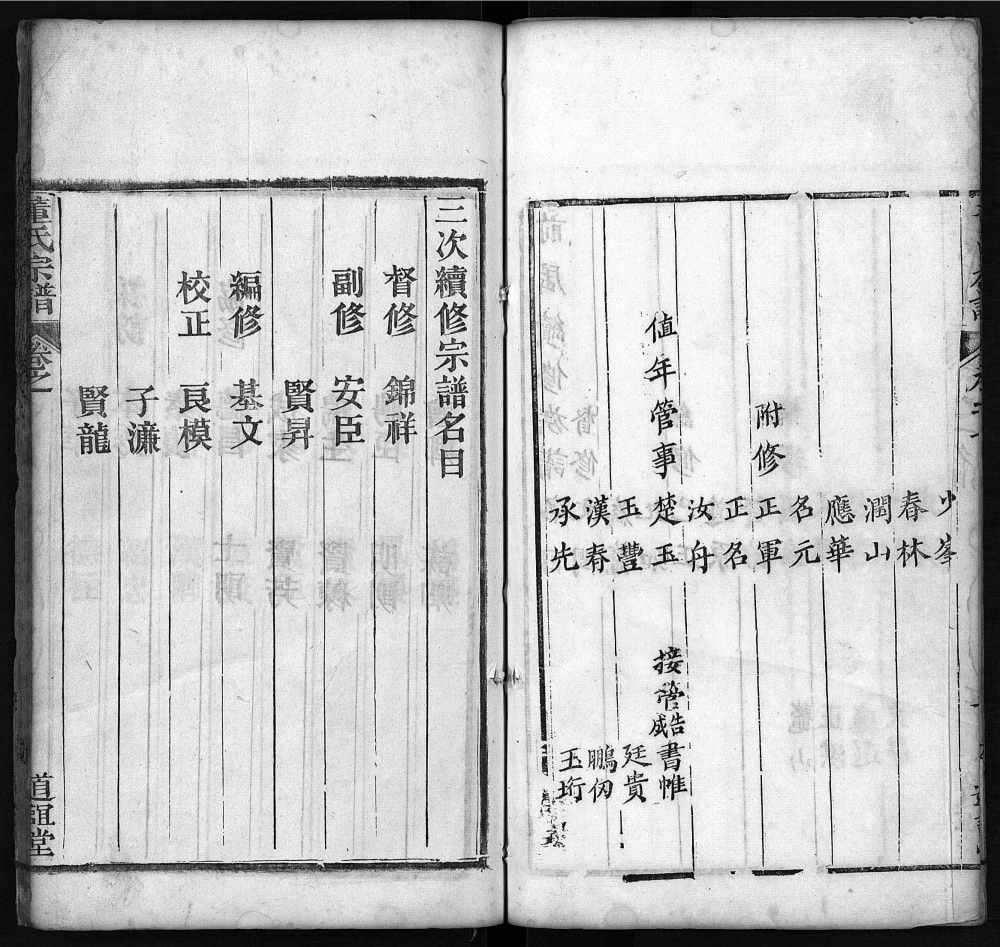 少峯
春林
潤山
應華
名元
附修 正軍
正名
汝舟
值年管事 楚玉 接管誥 書帷
玉豐 廷貴
漢春 鵬仞
承先 玉珩
三次續修宗譜名目
督修 錦祥
副修 安臣
賢昇
編修 基文
校正 良模
子濂
賢龍
董氏宗譜 卷之 道誼堂